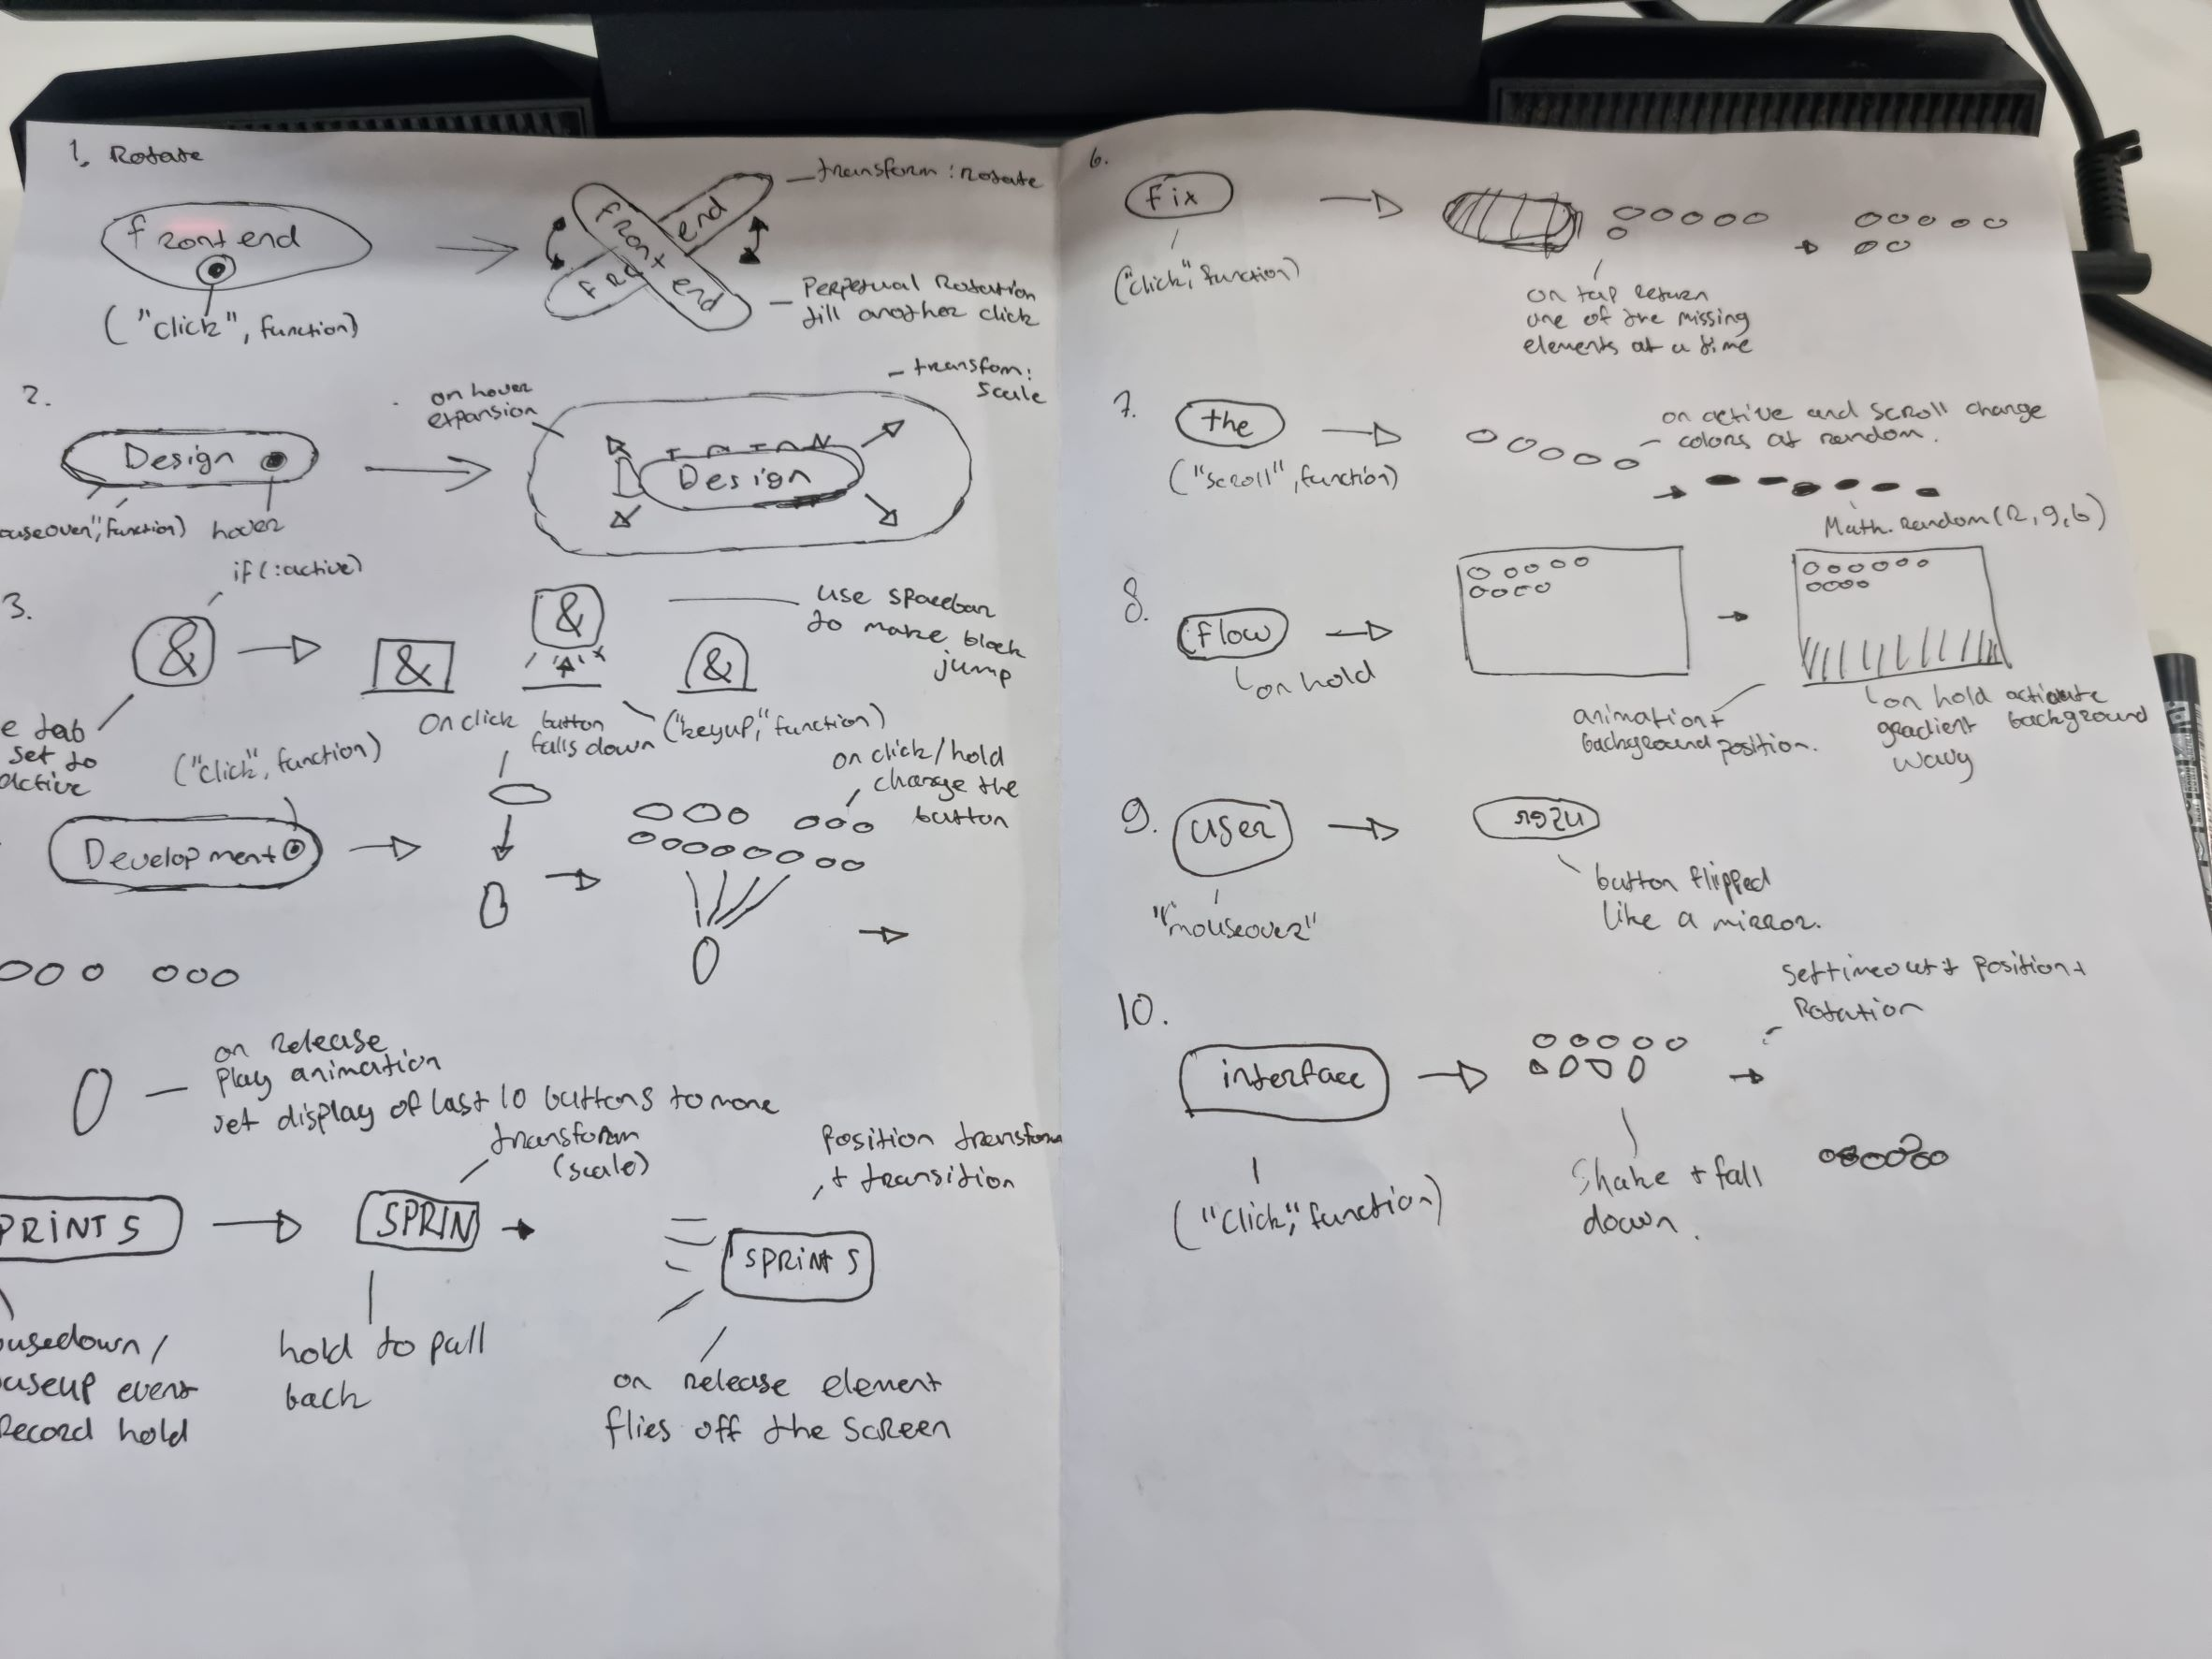 1. Rotate
frontend
("click", function)
front end
end
transform: rotate
Perpetual Rotation
till another click
2.
Design
hover
on hover
expansion
Design
transfom:
scale
if(:active)
3.
&
set to
active
&
&
&
use spacebar
to make block
jump
("keyup", function)
("click", function)
Development
On click button
falls down
on click/hold
change the
button
on release
play animation
set display of last 10 buttons to none
PRINTS
record hold
transform
(scale)
SPRIN
hold to pull
back
position transform
+ transition
SPRINTS
on release element
flies off the screen
6.
Fix
("click", function)
on tap return
one of the missing
elements at a time
7.
the
("scroll", function)
on active and scroll change
colors at random.
Math.random(r,g,b)
8.
flow
on hold
animation+
background position.
on hold activate
gradient background
wavy
9.
user
"mouseover"
user
button flipped
like a mirror.
10.
interface
("click", function)
Shake + fall
down.
settimeout+ position+
Rotation